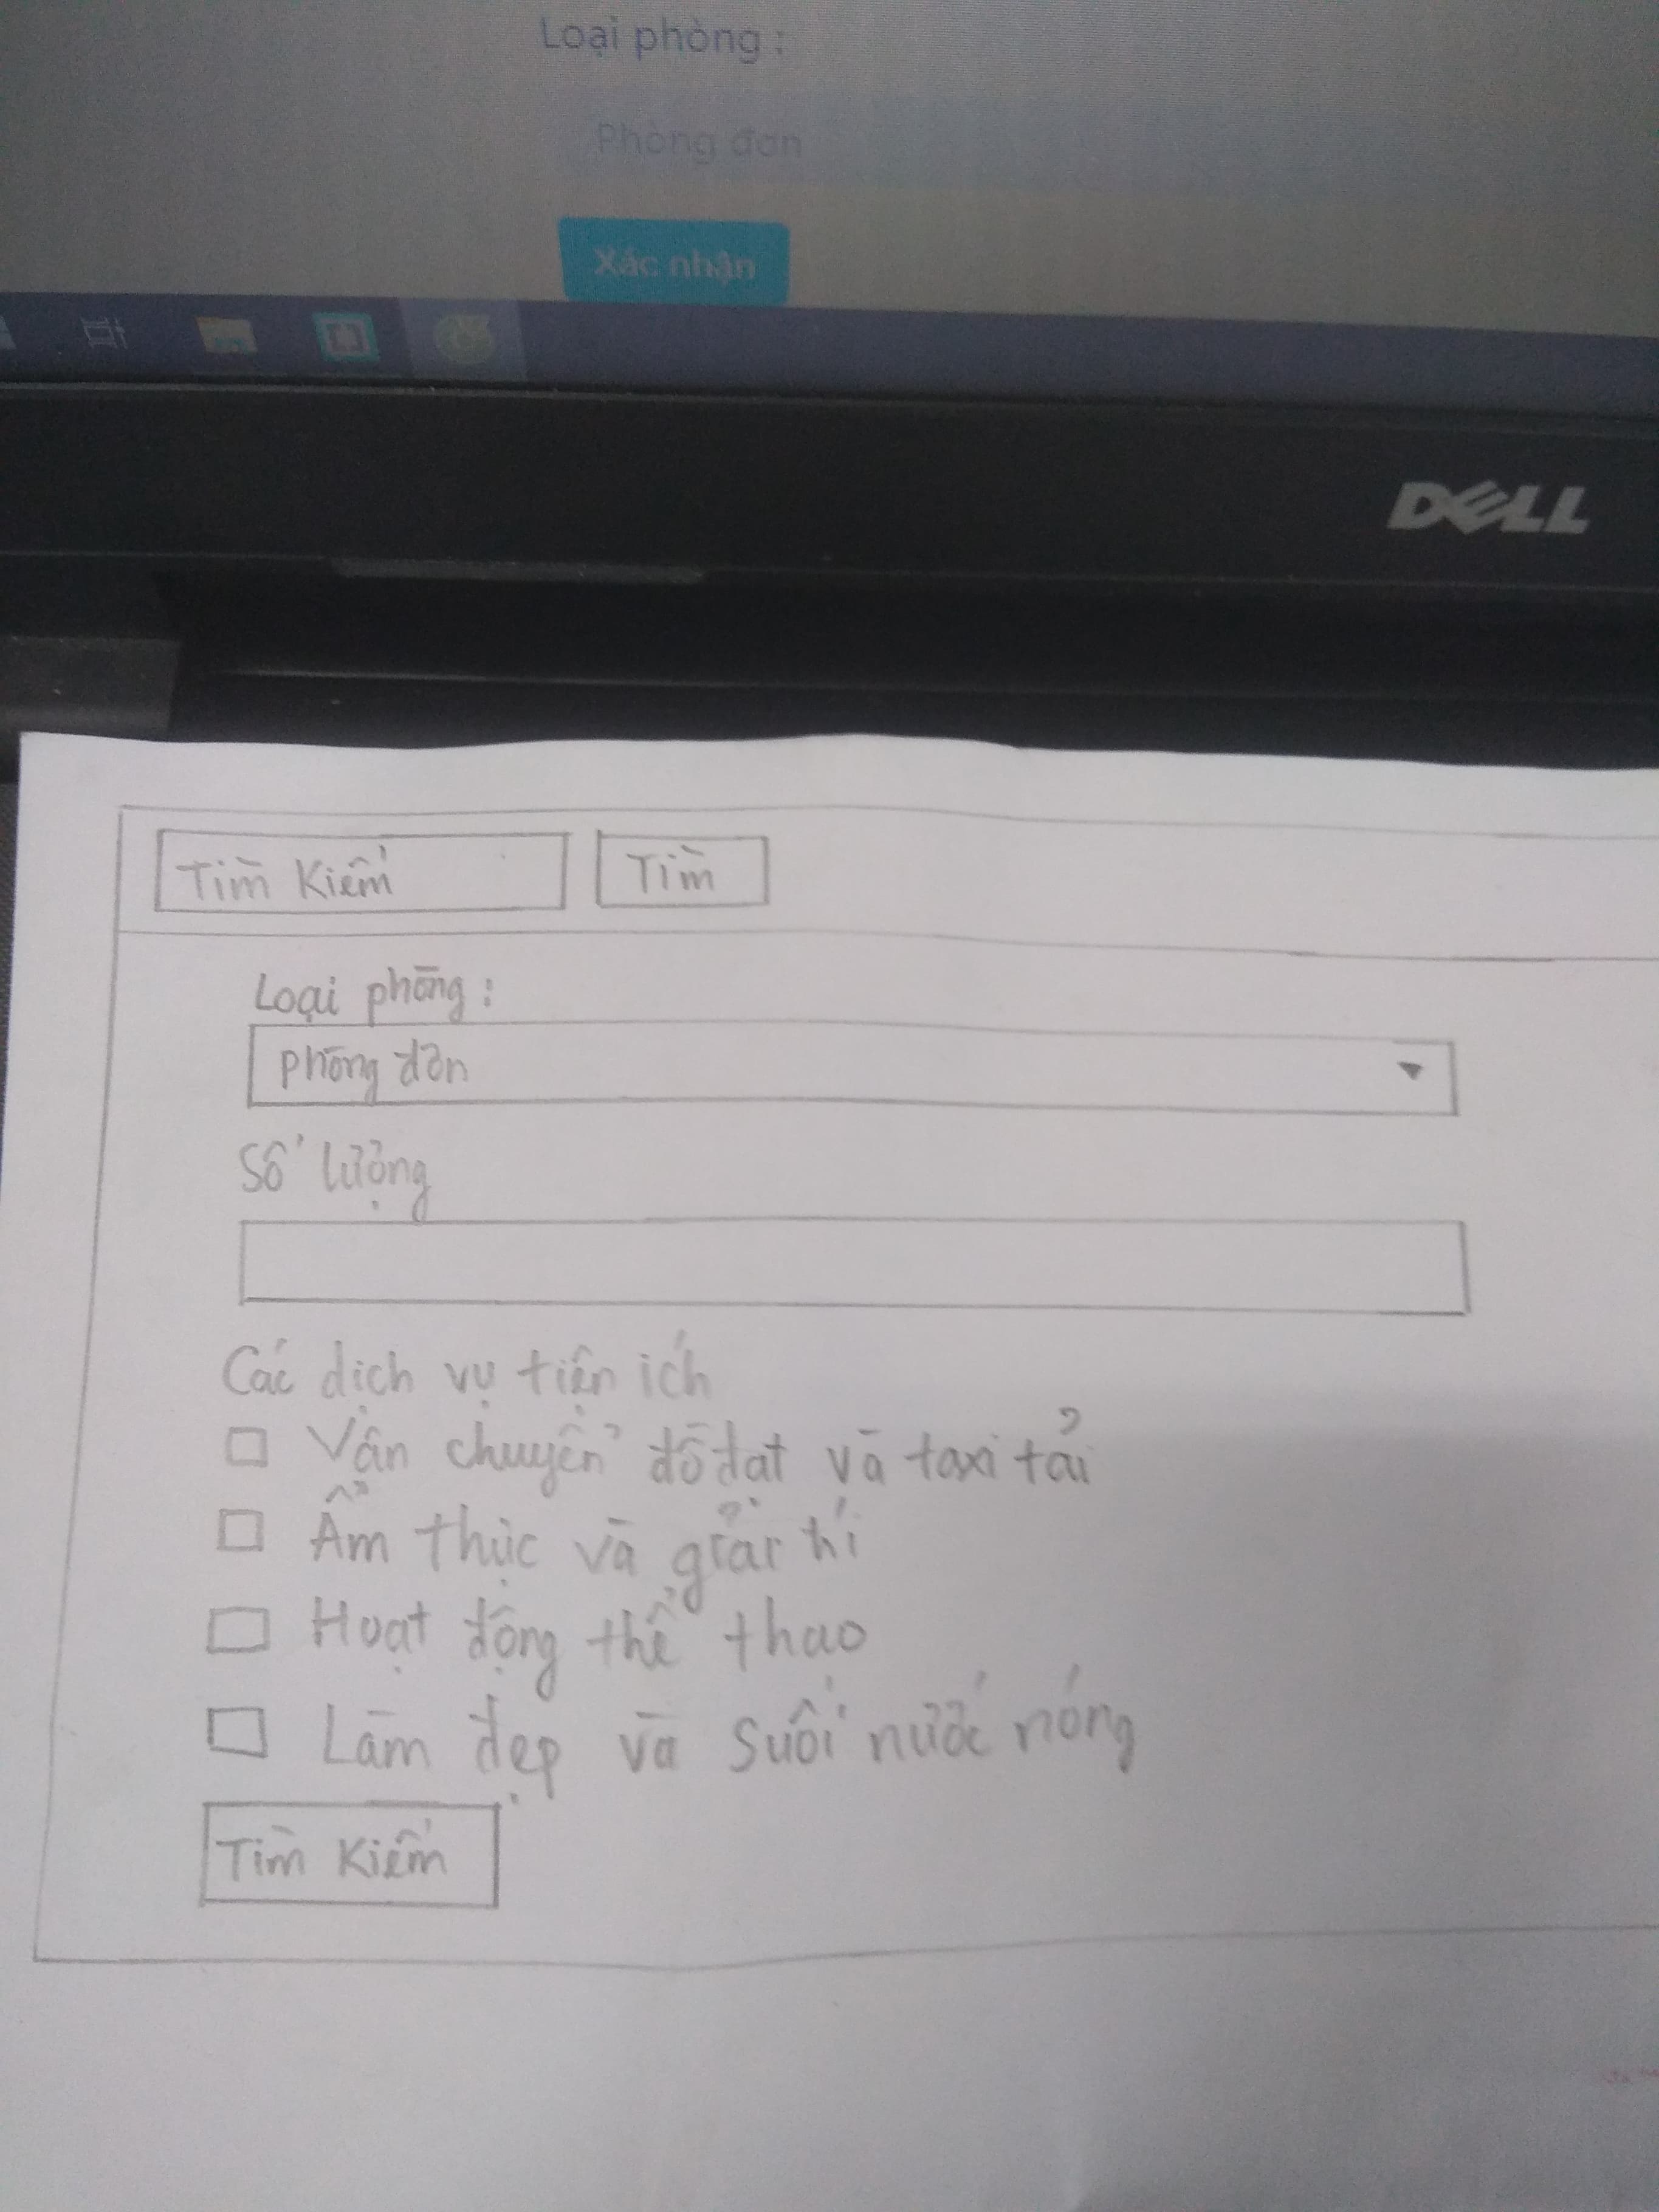 Loại phòng :
Phòng đơn
Xác nhận
DELL
Tìm Kiếm
Tìm
Loại phòng :
phòng đơn
Số lượng
Các dịch vụ tiện ích
Vận chuyển đồ đạt và taxi tải
Ẩm thực và giải trí
Hoạt động thể thao
Làm đẹp và suối nước nóng
Tìm Kiếm